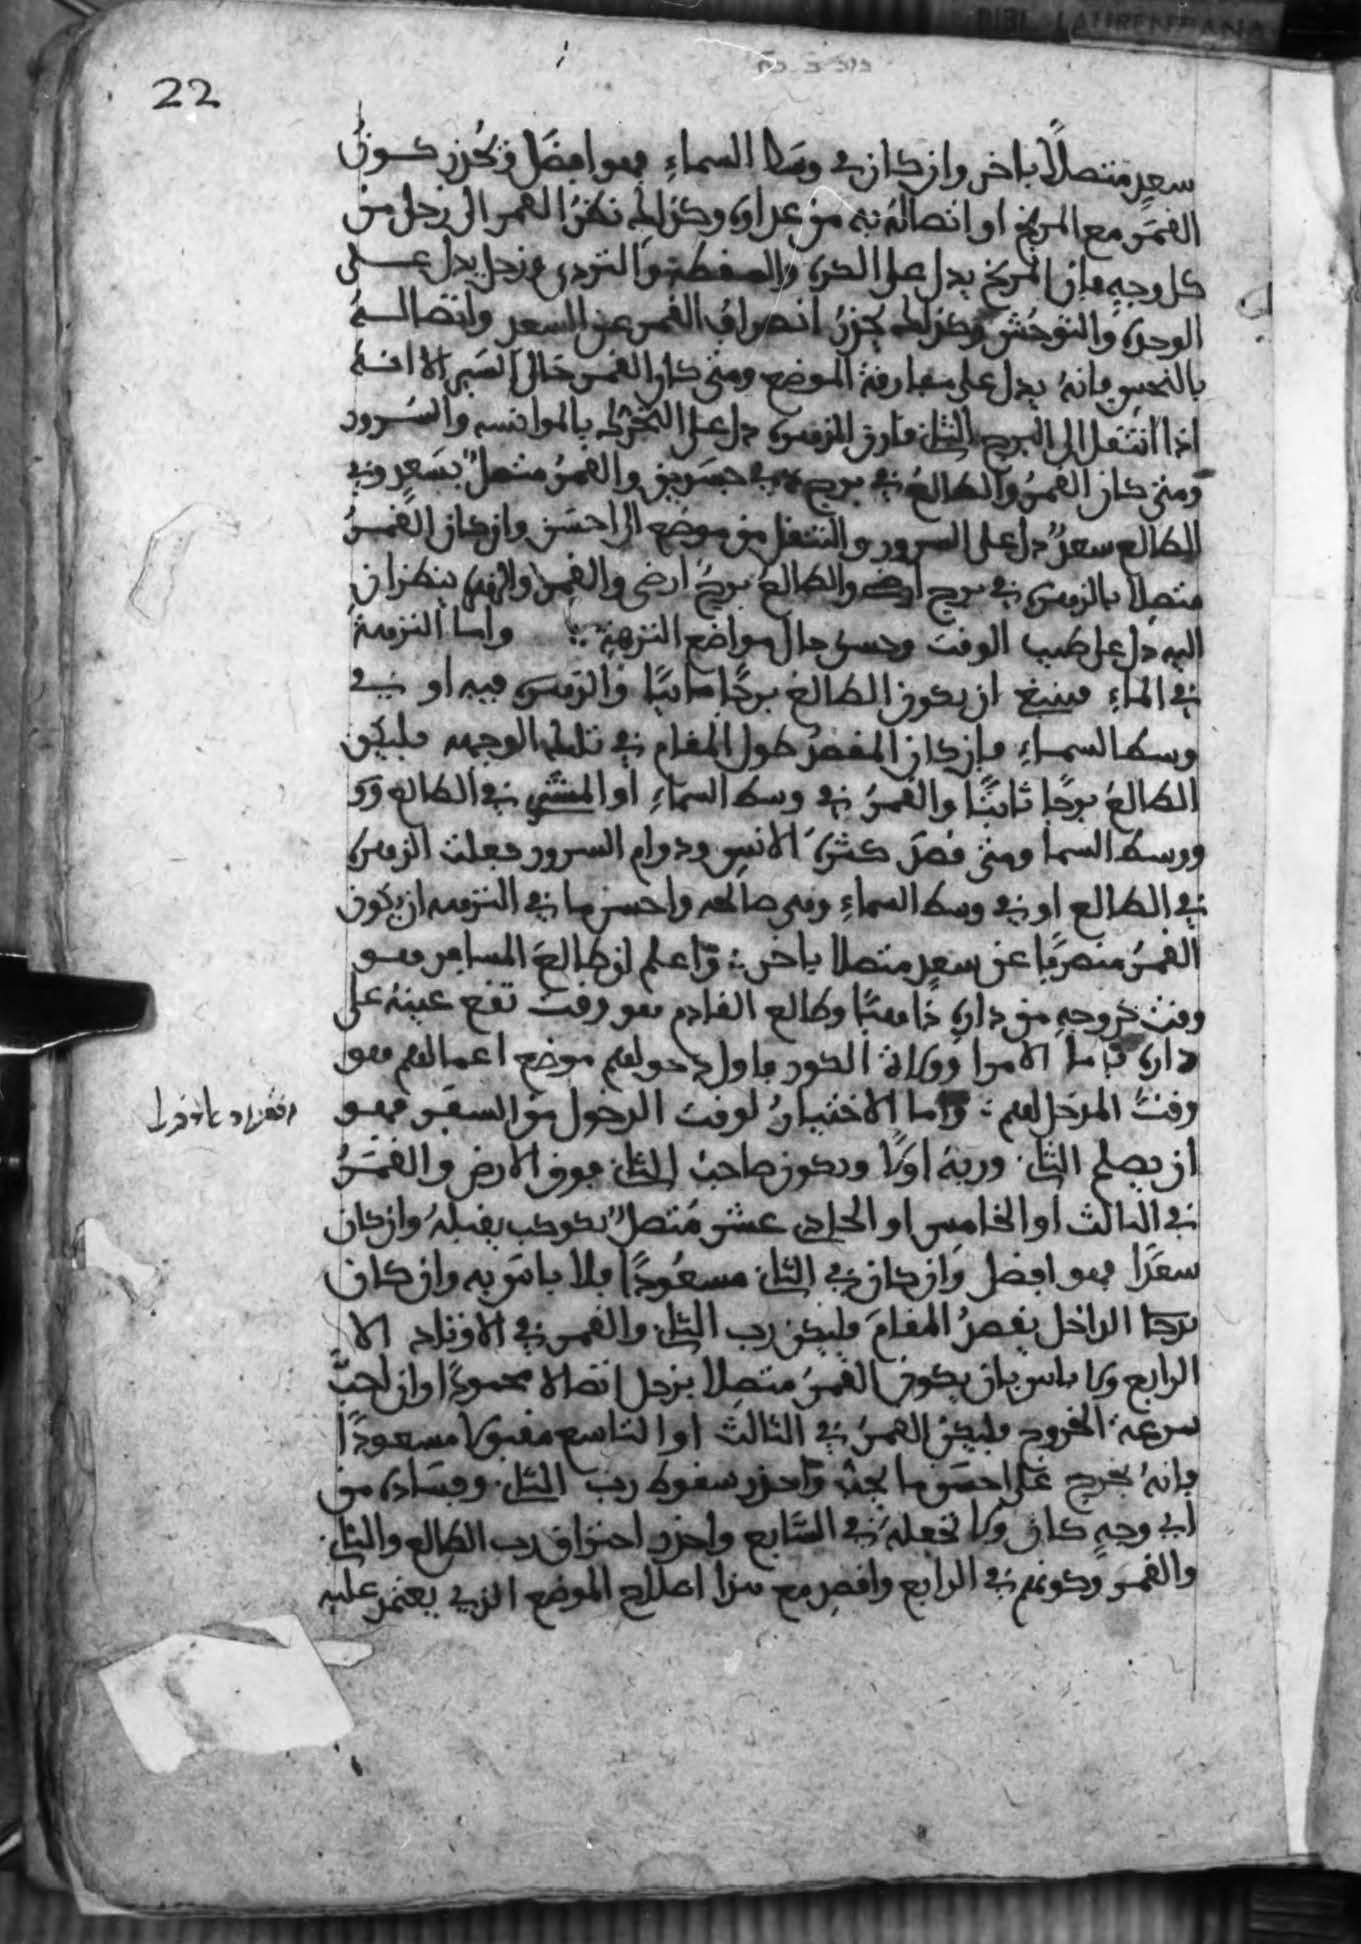 BIBL. LAURENZIANA
22
سعدٍ متصلاً باخر وان كان في وسط السماءِ فهو افضل ويُحذر كون
القمر مع المريخ او اتصاله به من عداوة وكذلك نظرُ القمر الى زحل من
كل وجهٍ فان المريخ يدل على الكره والسقطة والتردي وزحل يدل على
الوحدة والتوحش وكذلك يحذر انصراف القمر عن السعد واتصاله
بالنحس فانه يدل على مفارقة الموضع ومتى كان القمر خالى السير الا انه
اذا انتقل الى البرج الثاني فارق الزهرة دل على التحرك بالموانسه والسرور
ومتى كان القمرُ والطالعُ في برج ذي جسدين والقمرُ متصلٌ بسعدٍ وفي
الطالع سعدٌ دل على السرور والتنقل من موضع الى احسن وان كان القمرُ
متصلا بالزهرة في برج ارض والطالعُ برجٌ ارضي والقمر والزهرة ينظران
اليه دل على طيب الوقت وحسن حال مواضع النزهة ؛ واما النزهة
في الماءِ فينبغ ان يكون الطالعُ برجًا مائيًا والزهرة فيه او في
وسط السماءِ فان كان المقصدُ طول المقام في تلك الوجهه فليكن
الطالعُ برجًا ثابتًا والقمرُ في وسط السماءِ او المشتري في الطالع وو
ووسط السما ومتى قصد كثرة الانس ودوام السرور جعلت الزهرة
في الطالع او في وسط السماءِ وهي صالحه واحسن ما في النزهه ان يكون
القمرُ منصرفًا عن سعدٍ متصلا باخر ؛ واعلم ان طالع المسافر هو
وقت خروجهِ من دارهِ ذاهبًا وطالع القادم هو وقت تقع عينهُ على
داره فاما الامرا وولاة الكور فاول دخولهم موضع اعمالهم هو
وقتُ المدخل لهم ؛ واما الاختيارُ لوقت الدخول من السفر فهو
ان يصلح الثاني وربهُ اولاً ويكون صاحبُ الثاني فوق الارض والقمرُ
في الثالث او الخامس او الحادي عشر متصلٌ بكوكب يقبلهُ وان كان
سعدًا فهو افضل وان كان في الثاني مسعودًا فلا باس به وان كان
الداخل يقصدُ المقامَ فليكن رب الثاني والقمر في الاوتاد الا
الرابع ولا باس بان يكون القمرُ متصلا بزحل اتصالا محمودًا وان احب
سرعة الخروج فليكن القمرُ في الثالث او التاسع مقبولا مسعودًا
فانهُ يخرج على احسن ما يحب واحذر سقوط رب الثاني وفساده من
اي وجهٍ كان ولا تجعلهُ في السابع واحذر احتراق رب الطالع والثاني
والقمر وكونهم في الرابع واقصد مع هذا اصلاح الموضع الذي يعتمد عليه